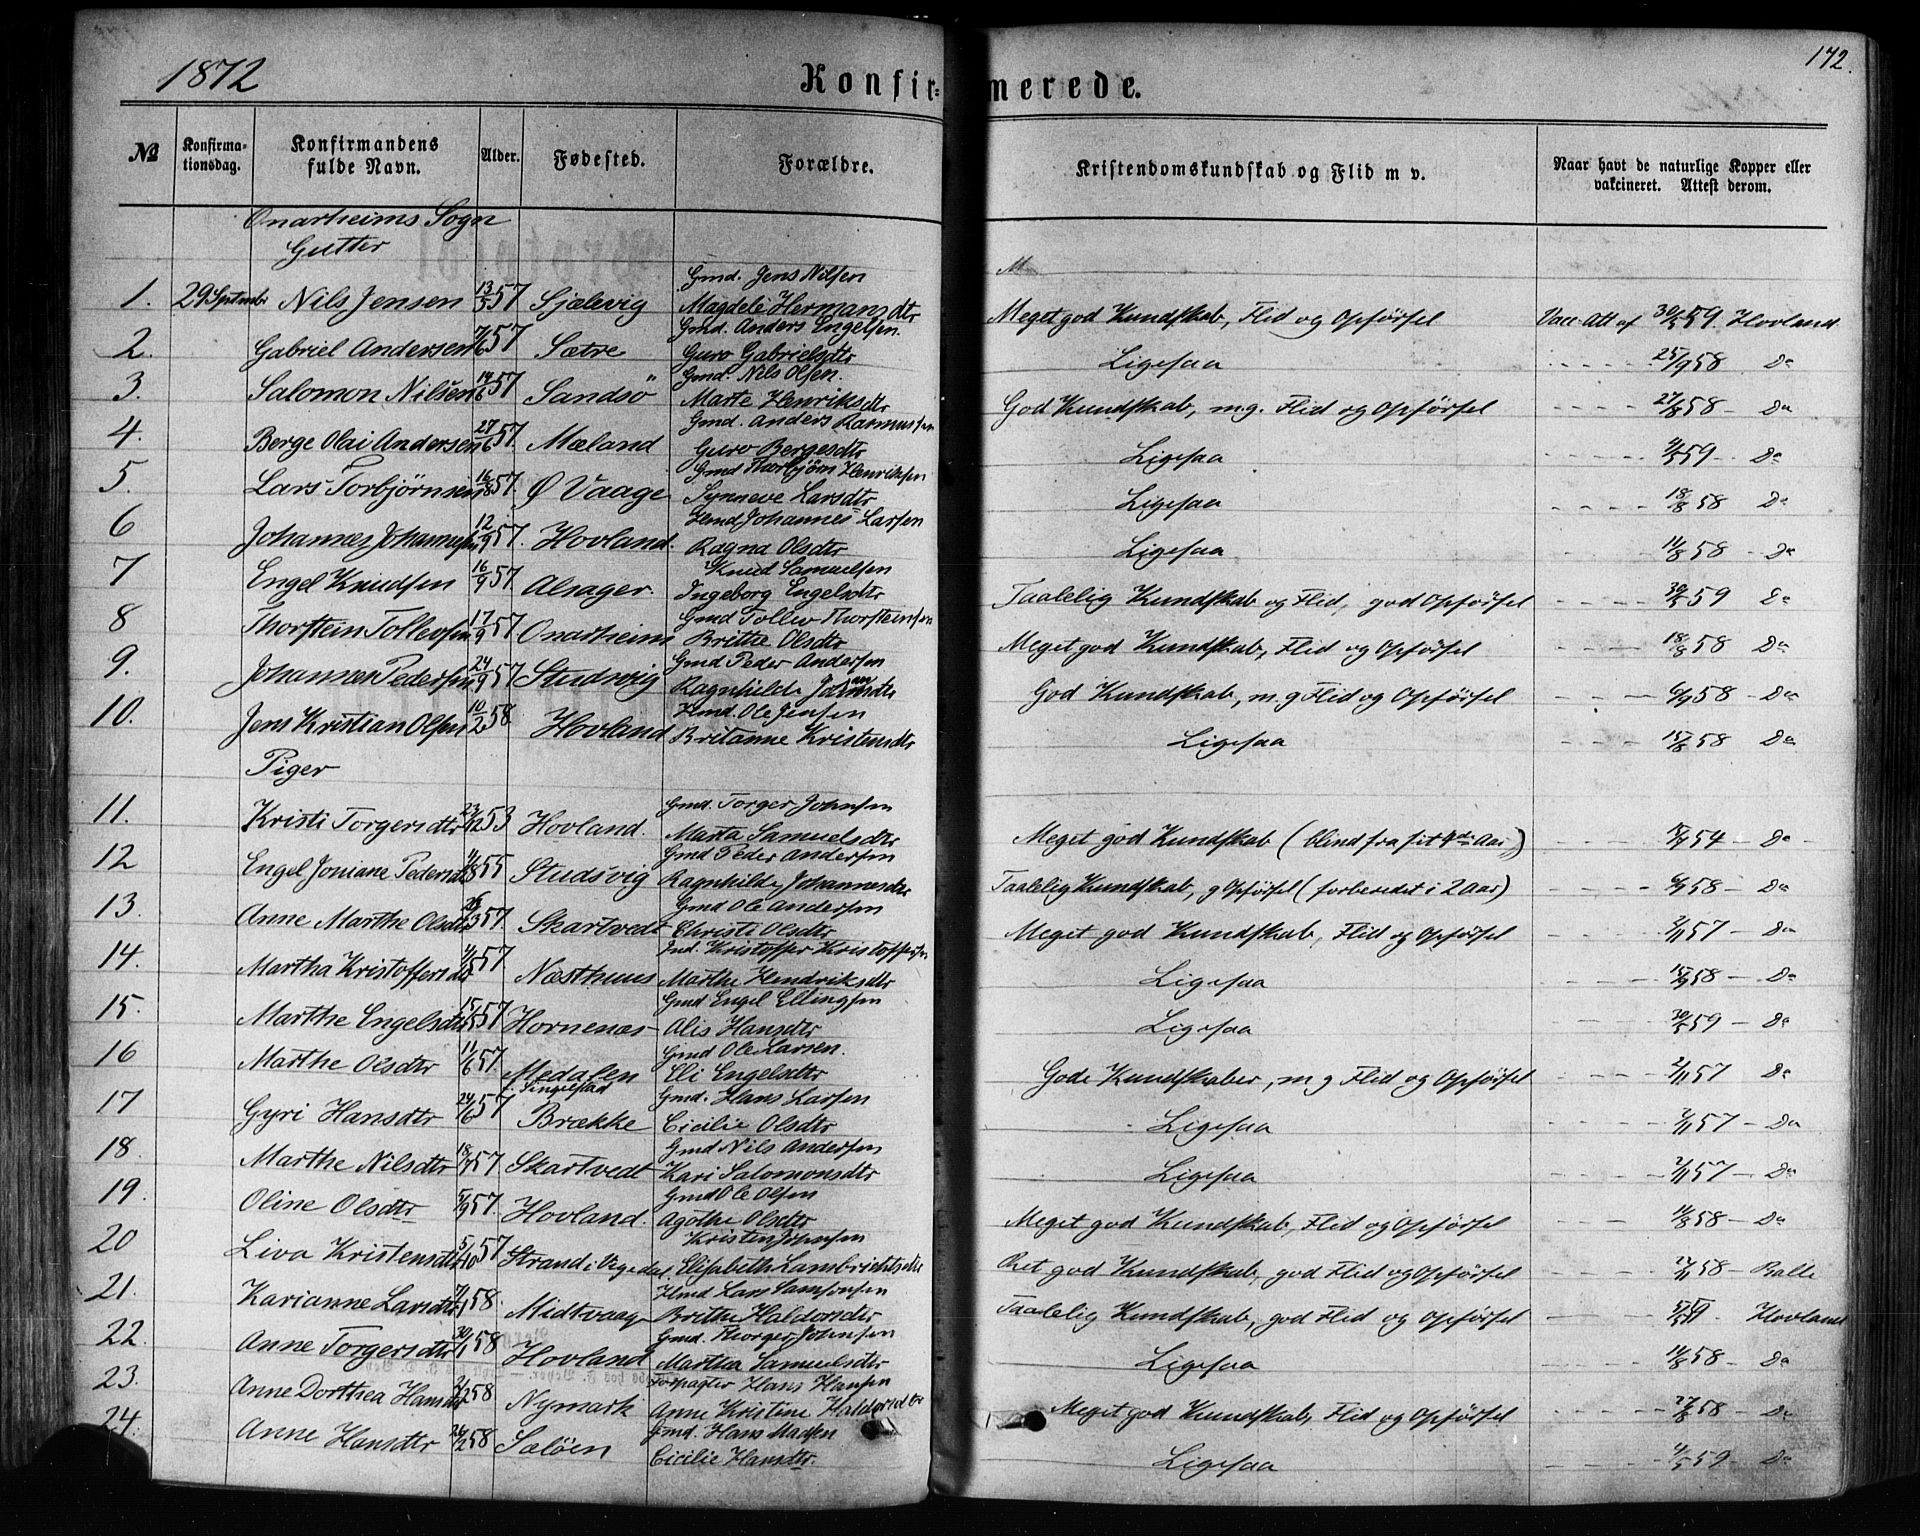 1872
Konfirmerede.
172.
№
Konfirmationsdag.
Konfirmandens fulde Navn.
Alder.
Fødested.
Forældre.
Kristendomskundskab og Flid m v.
Naar havt de naturlige Kopper eller vakcineret. Attest derom.
Onarheims Sogn
Gutter
1. 29 Septembr Nils Jensen 13/5 57 Sjælevig Gmd. Jens Nilsen Magdele Hermansdtr Meget god Kundskab, Flid og Opförsel Vacc. Att af 30/5 59. Hovland
2. Gabriel Andersen 7/6 57 Sætre Gmd. Anders Engelsen. Guro Gabrielsdtr Ligesaa 25/9 58 Do
3. Salomon Nilsen 14/6 57 Sandsö Gmd. Nils Olsen. Marte Henriksdtr God Kundskab, m.g. Flid og Opförsel 27/8 58 - Do
4. Berge Olai Andersen 27/6 57. Mæland Gmd. Anders Rasmussen Guro Bergesdtr Ligesaa 59 - Do
5. Lars Torbjørnsen 16/8 57. Ø Vaage Gmd Thorbjörn Henriksen Synneve Larsdtr Ligesaa 18/8 58 Do
6 Johannes Johannessen 12/9 57. Hovland. Hmd Johannes Larsen Ragna Olsdtr Ligesaa 11/8 58 - Do
7 Engel Knudsen 16/9 57. Alsager. Knud Samuelsen Ingeborg Engelsdtr Taalelig Kundskab og Flid, god Opförsel 30/5 59 Do
8 Thorstein Tollevsen 17/9 57 Onarheim Gmd Tollev Thorsteinsen Brithe Olsdtr Meget god Kundskab, Flid og Opförsel 18/8 58 Do
9. Johannes Pedersen 24/9 57 Studsvig Gmd Peder Andersen Ragnhilde Johansdtr God Kundskab, m.g Flid og Opförsel 6/9 58 - Do
10. Jens Kristian Olsen 10/2 58. Hovland Hmd. Ole Jensen Britanne Kristensdtr Ligesaa 15/8 58 Do
Piger
11. Kristi Torgersdtr 23/12 53 Hovland. Gmd. Torger Johnsen Marta Samuelsdtr Meget god Kundskab (blind fra sit 4de Aar) 54 - Do
12 Engel Joniane Pedersdtr 4/8 55 Studsvig Gmd Peder Andersen Ragnhilde Johannesdtr Taalelig Kundskab, g Opförsel (forberedet i 2 Aar) 6/9 58 - Do
13. Anne Marthe Olsdtr 57 Skartvedt Gmd Ole Andersen Christi Olsdtr Meget god Kundskab, Flid og Opförsel 2/11 57 - Do
14. Martha Kristoffersdtr 57 Næsthuus Ind. Kristoffer Kristoffersen Marthe Hendriksdtr Ligesaa 15/9 58 - Do
15. Marthe Engelsdtr 15/5 57 Hornenæs Gmd Engel Ellingsen Alis Hansdtr Ligesaa 30/5 59 - Do
16 Marthe Olsdtr 11/6 57. Medalen Gmd Ole Larsen. Eli Engelsdtr Gode Kundskaber, m g Flid og Opförsel 2/11 57 - Do
17 Gyri Hansdtr 24/6 57 Brække Gmd. Hans Larsen Cicilie Olsdtr Ligesaa 2/11 57 - Do
18. Marthe Nilsdtr 18/7 57. Skartvedt Gmd Nils Andersen Kari Salomonsdtr Ligesaa 2/11 57 - Do
19. Oline Olsdtr 5/9 57. Hovland. Gmd Ole Olsen Agothe Olsdtr Meget god Kundskab, Flid og Opförsel 11/8 58 - Do
20 Liva Kristensdtr 5/10 57 Strand i Vigedal. Kristen Johnsen Elisabeth Lambrichtsdtr Ret god Kundskab, god Flid og Opförsel 58 - Balle
21. Karianne Larsdtr 7/1 58. Midtvaage Hmd Lars Samsonsen Brithe Haldorsdtr Taalelig Kundskab, god Flid og Opförsel 59. Hovland
22. Anne Torgersdtr 30/1 58 Hovland Gmd. Thorger Johnsen Martha Samuelsdtr Ligesaa 11/8 58 - Do
23. Anne Dorthea Hansdtr 2/2 58 Nymark Forpagter Hans Hansen Anne Kristine Haldorsdtr Meget god Kundskab, Flid og Opförsel 27/8 58 - Do
24. Anne Hansdtr 26/2 58 Salöen Gmd. Hans Madsen Cicilie Hansdtr. Ligesaa 4/5 59 - Do